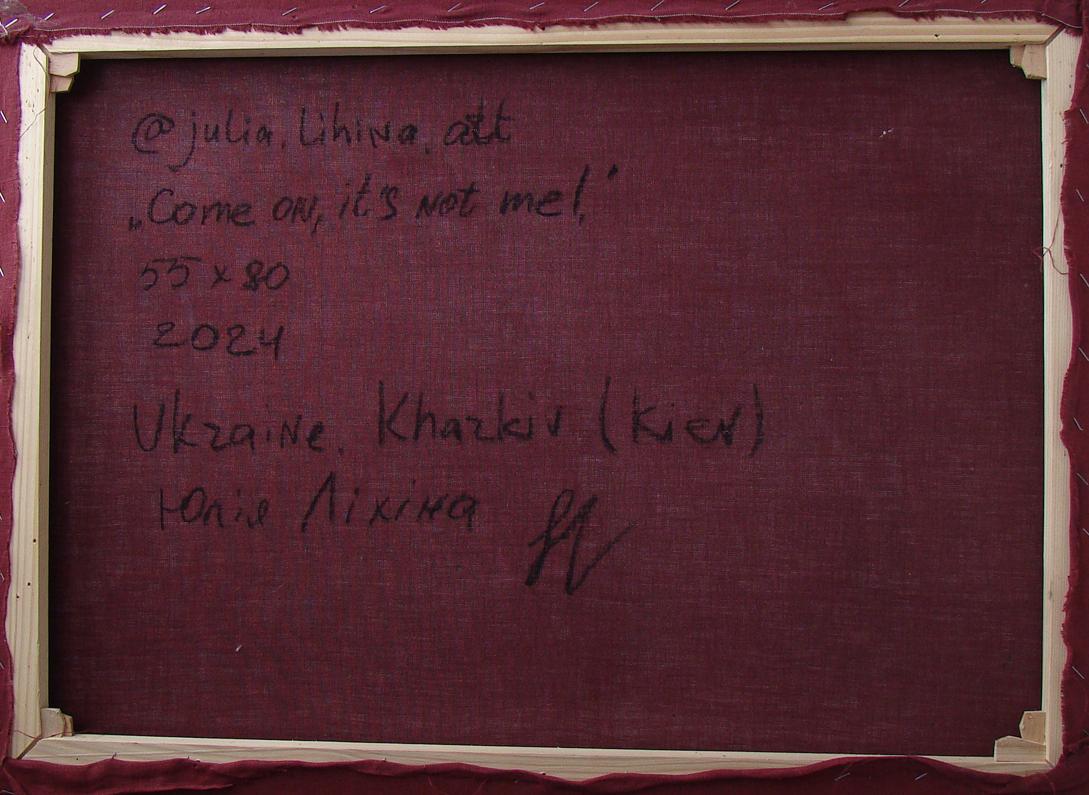 @julia.lihina.art
„Come on, it's not me!"
55 x 80
2024
Ukraine. Kharkiv (Kiev)
Юлія Ліхіна